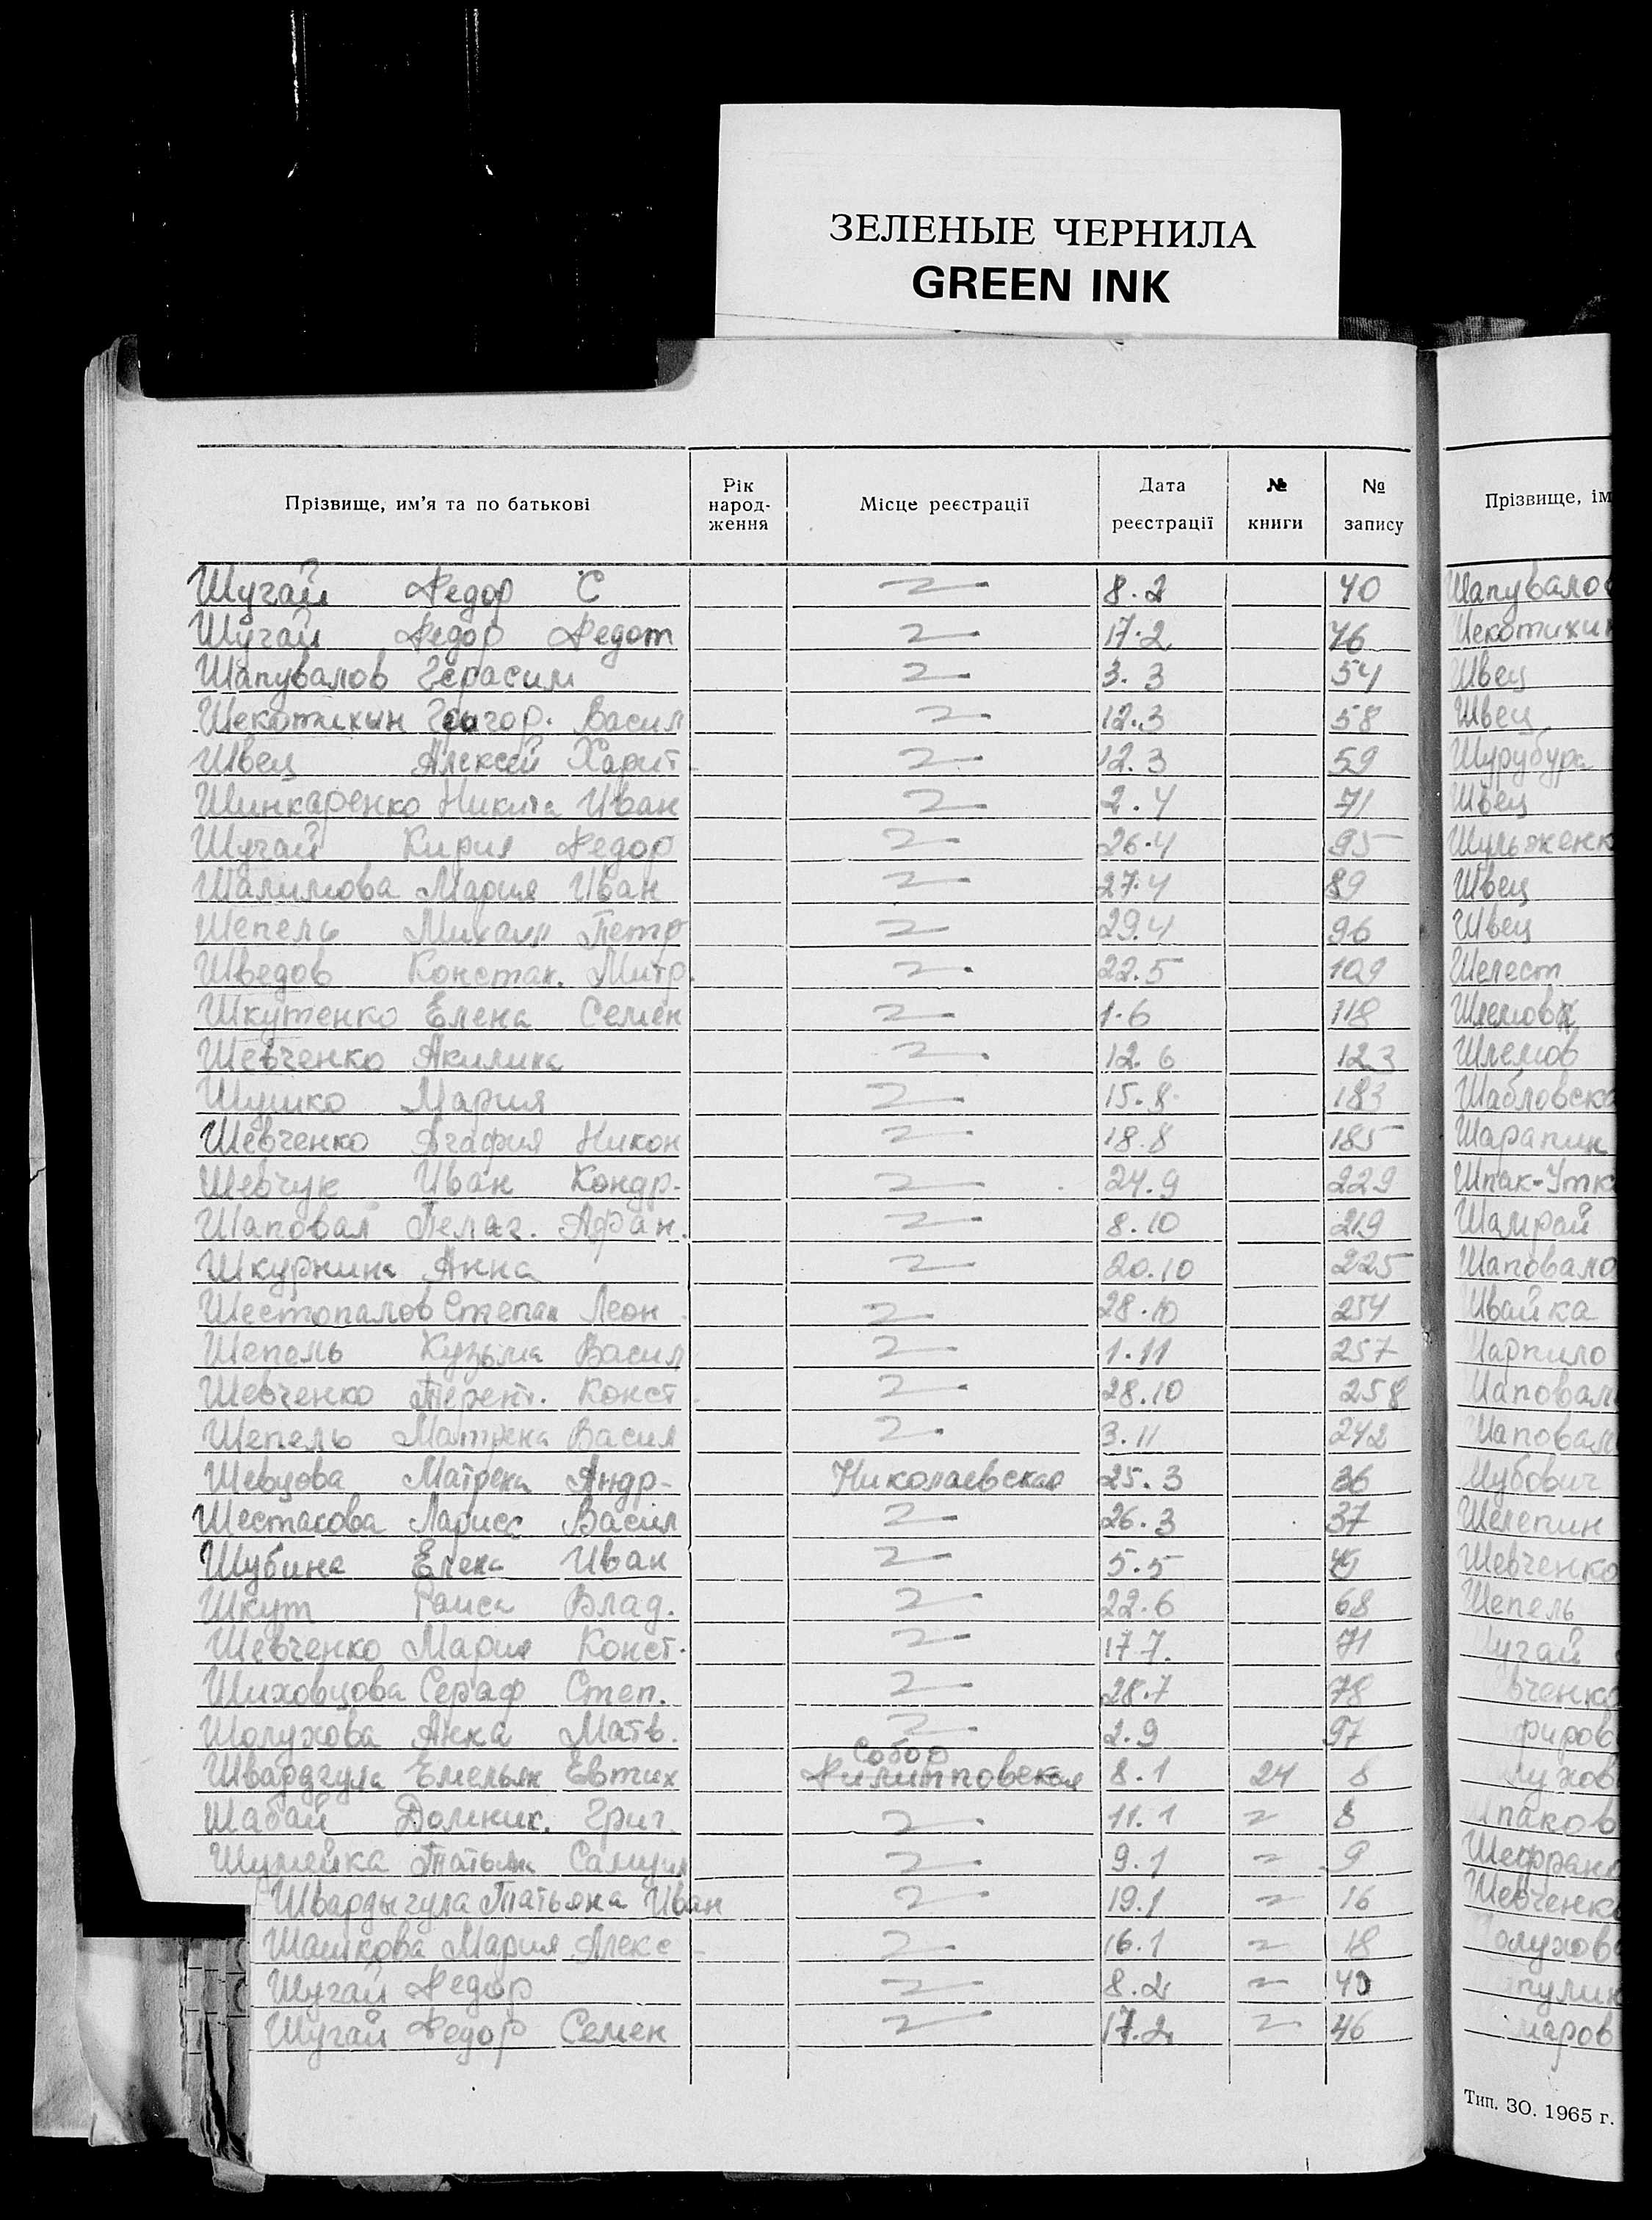 ЗЕЛЕНЫЕ ЧЕРНИЛА
GREEN INK
Прізвище, им'я та по батькові Рік народ-ження Місце реєстрації Дата реєстрації № книги № запису
Шугай Федор С 8.2 40
Шугай Федор Федот 17.2 46
Шапувалов Герасим 3.3 54
Шекотихин Григор. Васил 12.3 58
Швец Алексей Харит. 12.3 59
Шинкаренко Никита Иван 2.4 71
Шугай Кирил Федор 26.4 95
Шалимова Мария Иван 27.4 89
Шепель Михаил Петр 29.4 96
Шведов Констан. Митр. 22.5 109
Шкутенко Елена Семен 1.6 118
Шевченко Акилина 12.6 123
Шушко Мария 15.8 183
Шевченко Агафия Никон 18.8 185
Шевчук Иван Кондр. 24.9 229
Шаповал Пелаг. Афан. 8.10 219
Шкурнина Анна 20.10 225
Шестопалов Степан Леон 28.10 254
Шепель Кузьма Васил 1.11 257
Шевченко Терент. Конст. 28.10 258
Шепель Матрена Васил 3.11 242
Шевцова Матрена Андр- Николаевская 25.3 36
Шестакова Лариса Васил 26.3 37
Шубина Елена Иван 5.5
Шкут Раиса Влад. 22.6 68
Шевченко Мария Конст. 17.7. 71
Шиховцова Сераф Степ. 28.7 78
Шолухова Анна Матв. 2.9 97
Собор
Швардзгула Емельян Евтих Филипповская 8.1 24 8
Шабай Доминик. Григ. 11.1 8
Шумейка Татьяна Самуил 9.1 9
Швардыгула Татьяна Иван 19.1 16
Шашкова Мария Алекс 16.1 18
Шугай Федор 8.2 40
Шугай Федор Семен 17.2 46
Прізвище, ім
Шапувалов
Шекотихин
Швец
Швец
Шурубура
Швец
Шульженк
Швец
Швец
Шелест
Шлемова
Шлемов
Шабловска
Шарапин
Шпак-Утк
Шамрай
Шаповало
Швайка
Шарпило
Шаповал
Шаповал
Шубович
Шелепин
Шевченко
Шепель
угай
вченко
фиров
лухов
паков
Шефран
Шевченк
олухов
пулин
маров
Тип. ЗО. 1965 г.